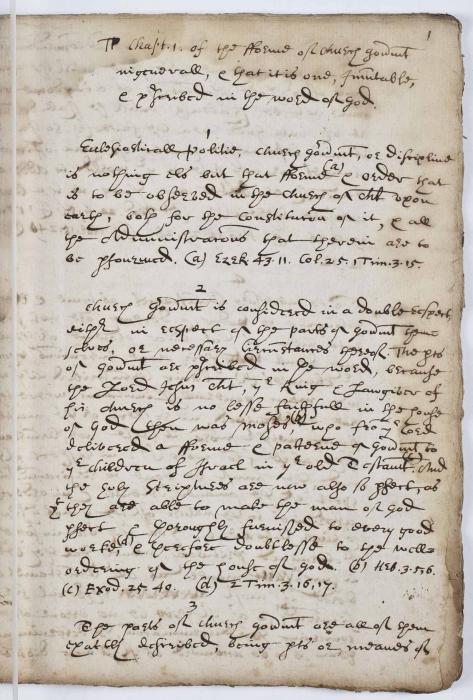 1
Chapt. 1. of the fforme of Church govmt
ingenerall, & that it is one, Immutable,
& pscribed in the word of God.
1
Ecclesiasticall Politie, Church govmt, or discipline
is nothing els but that fforme (a) & order that
is to be observed in the Church of Cht upon
earth; both for the Constitution of it, & all
the Administracons that therein are to
be pformed. (a) Ezek 43.11. Col. 2.5. 1 Tim. 3.15.
2
Church Govmt is considered in a double respect,
either in respect of the parts of govmt them
selves, or necessary Circumstances thereof. The pts
of Govmt are pscribed in the word, because
the Lord Jesus Cht, ye King & Lawgiver of
his Church is no lesse faithfull in the house
of God (b) then was Moses, who from ye Lord
delivered a fforme & patterne of govmt to
ye children of Israel in ye old Testamt. And
the holy Scriptures are now also so pfect, as
they are able to make the man of God
pfect & thoroughly furnished to every good
worke, (d) & therefore doubtlesse to the well
ordering of the house of God. (b) Heb. 3. 5.6.
(c) Exod. 25.40. (d) 2 Tim. 3.16, 17.
3
The parts of Church Govmt are all of them
exactly described, being pts or meanes of